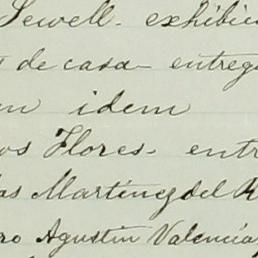 Sewell. exhibic
s de casa- entreg
en idem
os Flores- entr
las Martinez del R
ro Agustin Valencia,